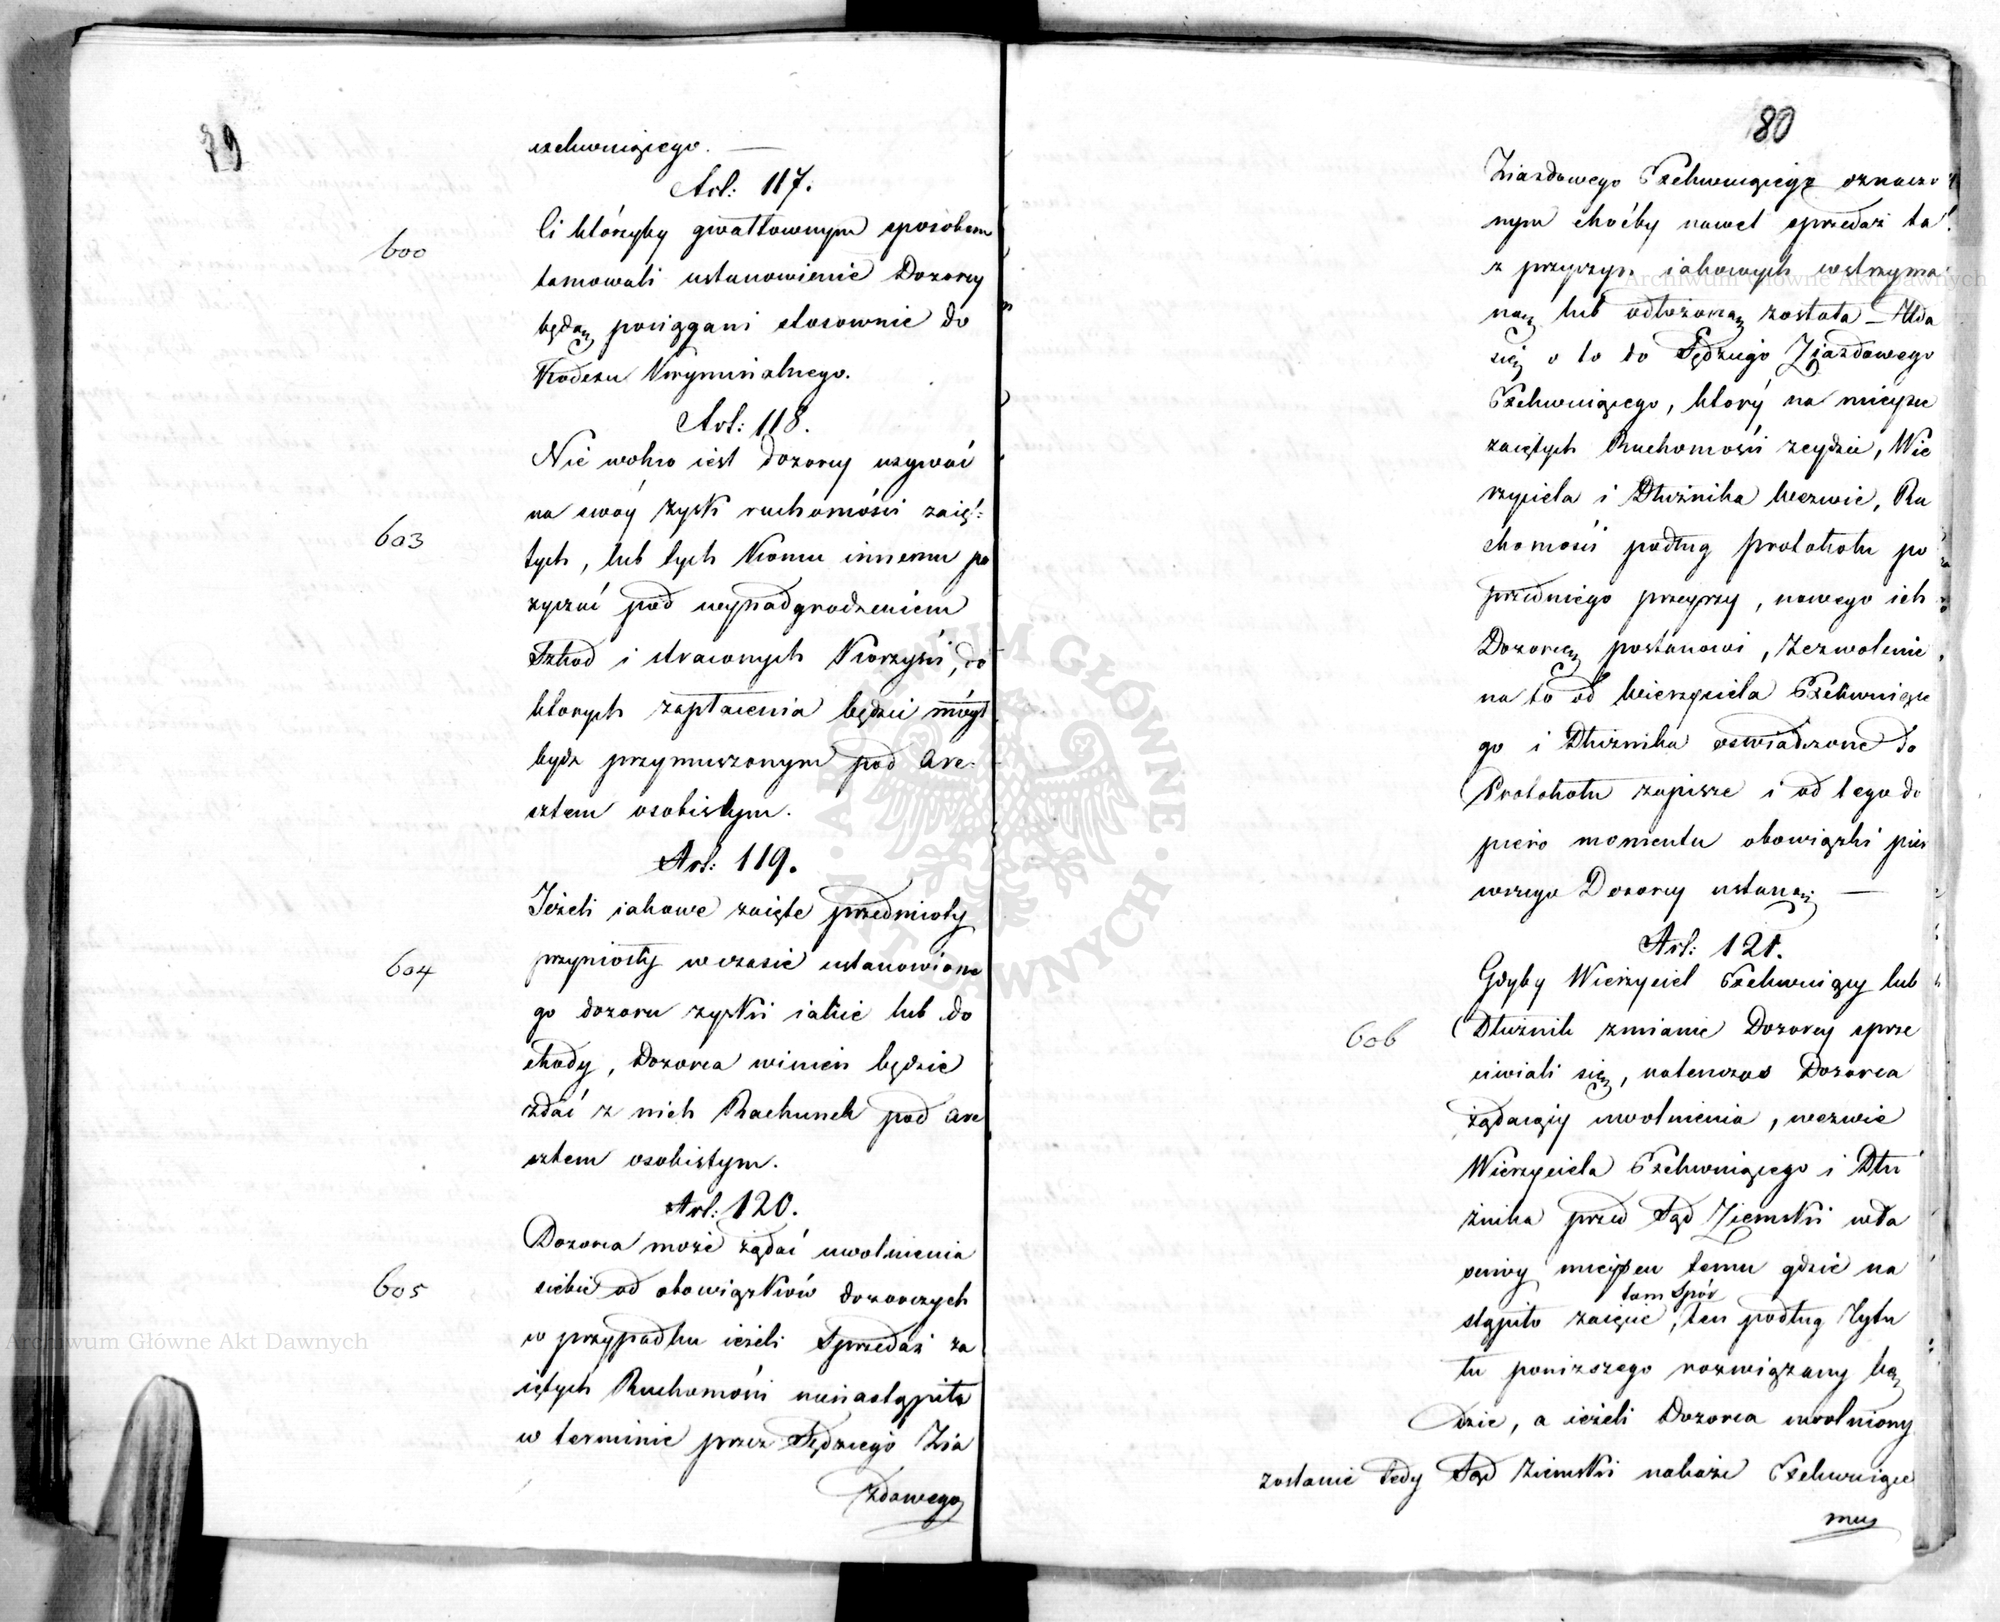 79
szekwuiącego. —
Art: 117.
600
Ci którzyby gwałtownym sposobem
tamowali ustanowienie Dozorcy
będą pociągani stosownie do
Kodexu Kryminalnego.
Art: 118.
Nie wolno iest dozorcy używać
603
na swóy zysk ruchomości zaię:
tych, lub tych komu innemu po
zyczać pod wynadgrodzeniem
Szkod i straconych Korzyści, do
ktorych zapłacenia będzie mógł
bydź przymuszonym pod Are:
sztem osobistym.
Art: 119.
Jeżeli iakowe zaięte przedmioty
604
przyniosły w czasie ustanowione
go dozoru zyski iakie lub do
chody, Dozorca winien będzie
zdać z nich Rachunek pod are
sztem osobistym.
Art: 120.
Dozorca może żądać uwolnienia
605
siebie od obowiązków dozorczych
w przypadku ieżeli Sprzedaż za
iętych Ruchomości nienastąpiła
w terminie przez Sędziego Zia
zdowego
80
Ziazdowego Exekwuiącego oznaczo
nym choćby nawet sprzedaż ta
z przyczyn iakowych wstrzyma
ną lub odłożoną została — Uda
się o to do Sędziego Zjazdowego
Exekwuiącego, który na mieysce
zaiętych Ruchomości zeydzie, Wie
rzyciela i Dłużnika wezwie, Ru
chomości podług protokołu po
przedniego przeyrzy, nowego ich
Dozorcę postanowi, Zezwolenie
na to od Wierzyciela Exekwuiące
go i Dłużnika oswiadczone do
Protokołu zapisze i od tego do
piero momentu obowiązki pier
wszego Dozorcy ustaną. —
Art: 121.
Gdyby Wierzyciel Exekwuiący lub
606
Dłużnik zmianie Dozorcy sprze
ciwiali się, natenczas Dozorca
żądaiący uwolnienia, wezwie
Wierzyciela Exekwuiącego i Dłu
żnika przed Sąd Ziemski wła
sciwy mieyscu temu gdzie na
tam Spór
stąpiło zaięcie, ten podług Tytu
łu ponizszego rozwiązany bę
dzie, a ieżeli Dozorca uwolniony
zostanie tedy Sąd Ziemski nakaże Exekwuiące
mu
Archiwum Główne Akt Dawnych
Archiwum Główne Akt Dawnych
ARCHIWUM GŁÓWNE · AKT DAWNYCH ·